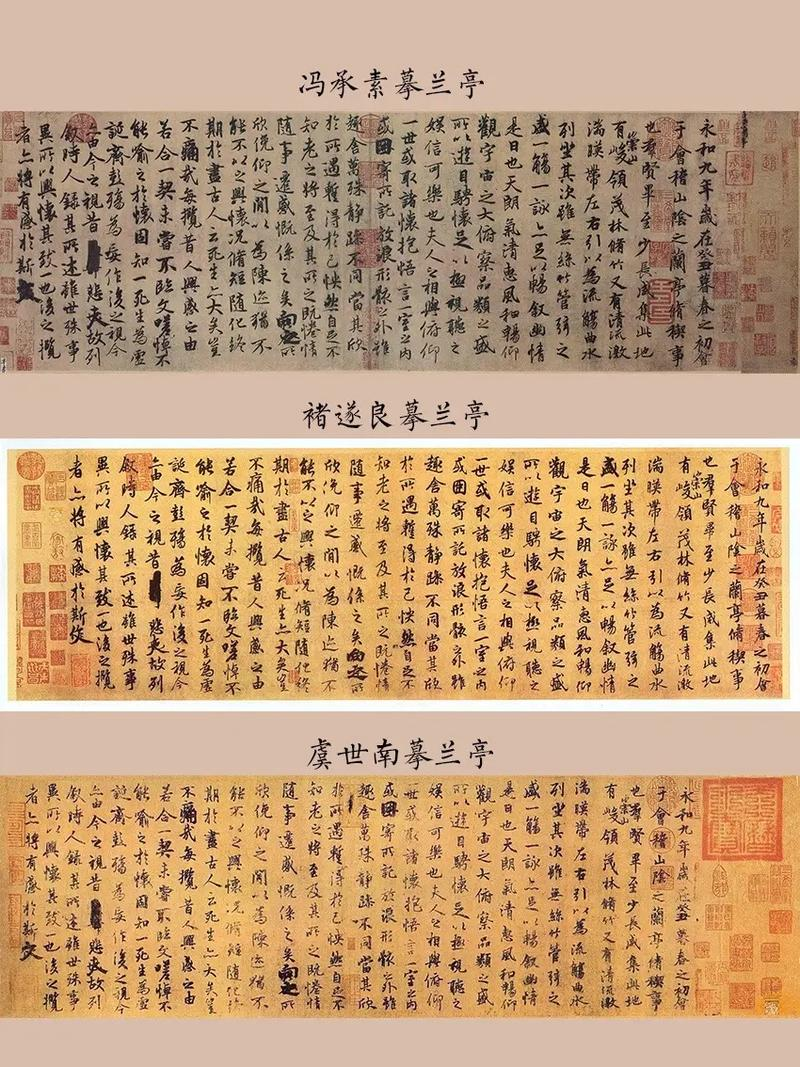 冯承素摹兰亭
永和九年歲在癸丑暮春之初會
于會稽山陰之蘭亭脩稧事
也羣賢畢至少長咸集此地
有崇山峻領茂林脩竹又有清流激
湍暎帶左右引以為流觴曲水
列坐其次雖無絲竹管弦之
盛一觴一詠亦足以暢敘幽情
是日也天朗氣清惠風和暢仰
觀宇宙之大俯察品類之盛
所以遊目騁懷足以極視聽之
娛信可樂也夫人之相與俯仰
一世或取諸懷抱悟言一室之內
或因寄所託放浪形骸之外雖
趣舍萬殊靜躁不同當其欣
於所遇蹔得於己怏然自足不
知老之將至及其所之既惓情
隨事遷感慨係之矣向之所
欣俛仰之閒以為陳迹猶不
能不以之興懷況脩短隨化終
期於盡古人云死生亦大矣豈
不痛哉每攬昔人興感之由
若合一契未嘗不臨文嗟悼不
能喻之於懷固知一死生為虛
誕齊彭殤為妄作後之視今
亦由今之視昔悲夫故列
敘時人錄其所述雖世殊事
異所以興懷其致一也後之攬
者亦將有感於斯文
褚遂良摹兰亭
永和九年歲在癸丑暮春之初會
于會稽山陰之蘭亭脩稧事
也羣賢畢至少長咸集此地
有崇山峻領茂林脩竹又有清流激
湍暎帶左右引以為流觴曲水
列坐其次雖無絲竹管弦之
盛一觴一詠亦足以暢敘幽情
是日也天朗氣清惠風和暢仰
觀宇宙之大俯察品類之盛
所以遊目騁懷足以極視聽之
娛信可樂也夫人之相與俯仰
一世或取諸懷抱悟言一室之內
或因寄所託放浪形骸之外雖
趣舍萬殊靜躁不同當其欣
於所遇蹔得於己怏然自足不
知老之將至及其所之既惓情
隨事遷感慨係之矣向之所
欣俛仰之閒以為陳迹猶不
能不以之興懷況脩短隨化終
期於盡古人云死生亦大矣豈
不痛哉每攬昔人興感之由
若合一契未嘗不臨文嗟悼不
能喻之於懷固知一死生為虛
誕齊彭殤為妄作後之視今
亦由今之視昔悲夫故列
敘時人錄其所述雖世殊事
異所以興懷其致一也後之攬
者亦將有感於斯文
虞世南摹兰亭
永和九年歲在癸丑暮春之初會
于會稽山陰之蘭亭脩稧事
也羣賢畢至少長咸集此地
有崇山峻領茂林脩竹又有清流激
湍暎帶左右引以為流觴曲水
列坐其次雖無絲竹管弦之
盛一觴一詠亦足以暢敘幽情
是日也天朗氣清惠風和暢仰
觀宇宙之大俯察品類之盛
所以遊目騁懷足以極視聽之
娛信可樂也夫人之相與俯仰
一世或取諸懷抱悟言一室之內
或因寄所託放浪形骸之外雖
趣舍萬殊靜躁不同當其欣
於所遇蹔得於己怏然自足不
知老之將至及其所之既惓情
隨事遷感慨係之矣向之所
欣俛仰之閒以為陳迹猶不
能不以之興懷況脩短隨化終
期於盡古人云死生亦大矣豈
不痛哉每攬昔人興感之由
若合一契未嘗不臨文嗟悼不
能喻之於懷固知一死生為虛
誕齊彭殤為妄作後之視今
亦由今之視昔悲夫故列
敘時人錄其所述雖世殊事
異所以興懷其致一也後之攬
者亦將有感於斯文